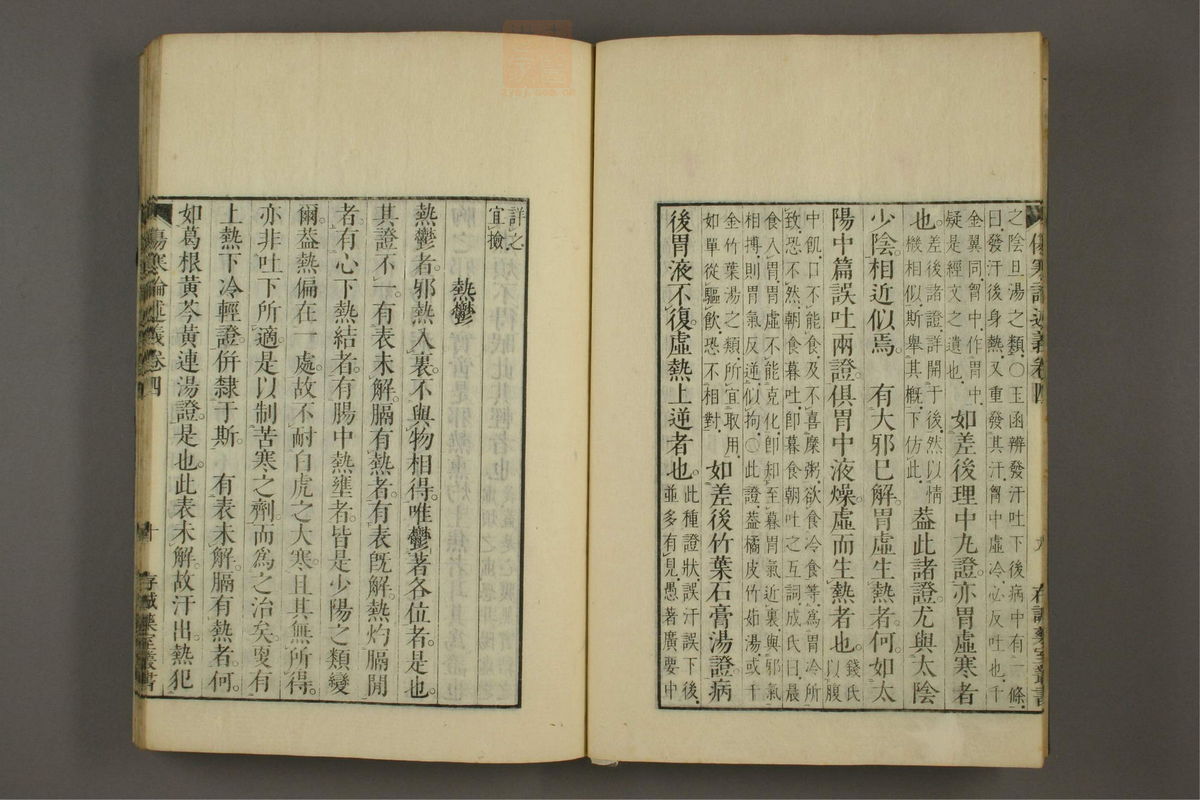 傷寒論述義卷四
九
存誠藥室叢書
之陰旦湯之類○玉函辨發汗吐下後病中有一條
曰發汗後身熱又重發其汗胷中虛冷必反吐也千
金翼同胷中作胃中
疑是經文之遺也
如差後理中丸證亦胃虛寒者
也
差後諸證詳開于後然以情
機相似斯舉其概下仿此
葢此諸證尤與太陰
少陰相近似焉 有大邪已解胃虛生熱者何如太
陽中篇誤吐兩證俱胃中液燥虛而生熱者也
錢氏
以腹
中飢口不能食及不喜糜粥欲食冷食等爲胃冷所
致恐不然朝食暮吐即暮食朝吐之互詞成氏曰晨
食入胃胃虛不能克化即知至暮胃氣近裏與邪氣
相搏則胃氣反逆似拘○此證葢橘皮竹茹湯或千
金竹葉湯之類所宜取用
如單從驅飲恐不相對
如差後竹葉石膏湯證病
後胃液不復虛熱上逆者也
此種證狀誤汗誤下後
並多有見愚著廣要中
詳之
宜撿
熱鬱
熱鬱者邪熱入裏不與物相得唯鬱著各位者是也
其證不一有表未解膈有熱者有表旣解熱灼膈閒
者有心下熱結者有腸中熱壅者皆是少陽之類變
爾葢熱偏在一處故不耐白虎之大寒且其無所得
亦非吐下所適是以制苦寒之劑而爲之治矣叟有
上熱下冷輕證併隸于斯 有表未解膈有熱者何
如葛根黃芩黃連湯證是也此表未解故汗出熱犯
傷寒論述義卷四
十
存誠藥室叢書